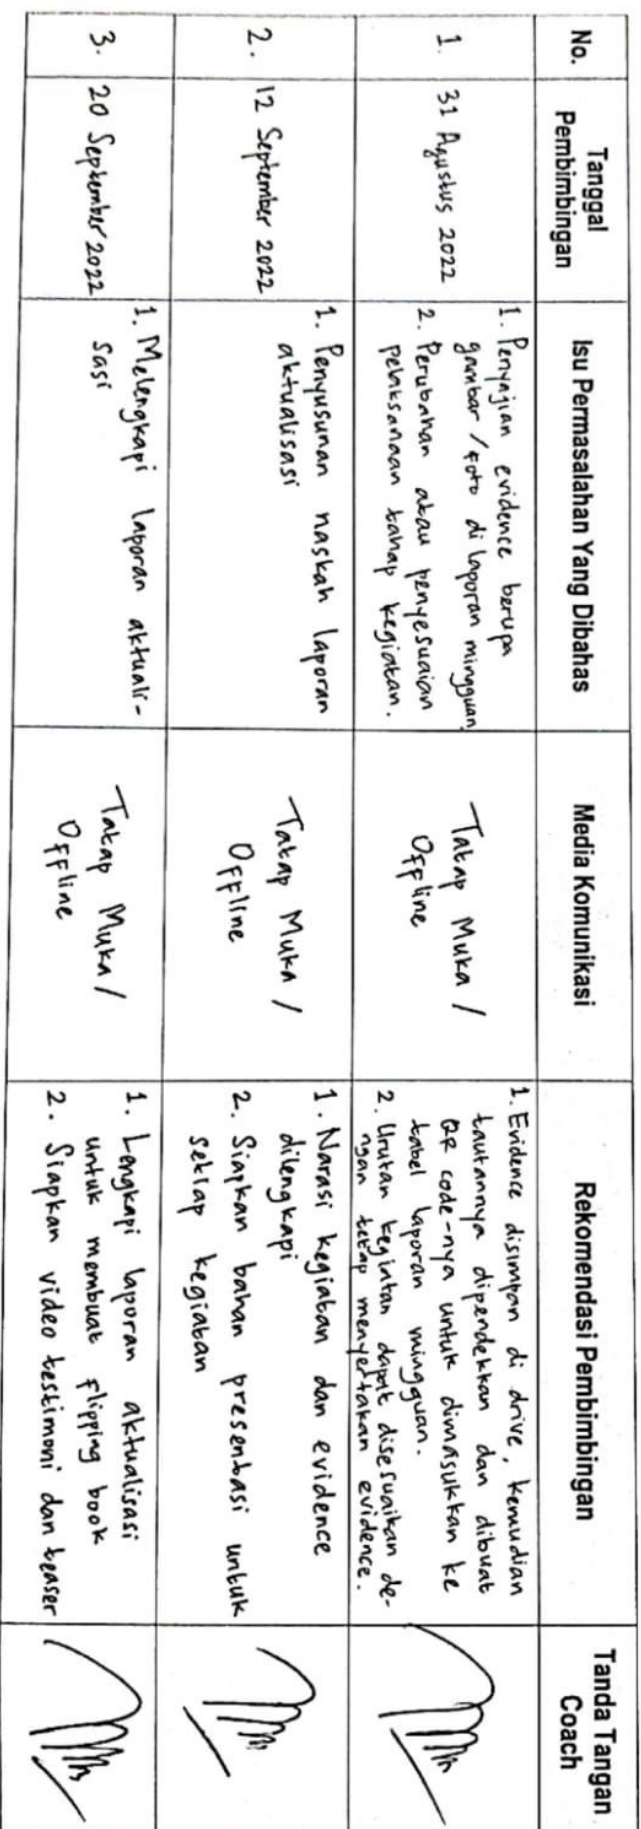 No.
Tanggal
Pembimbingan
Isu Permasalahan Yang Dibahas
Media Komunikasi
Rekomendasi Pembimbingan
Tanda Tangan
Coach
1.
31 Agustus 2022
1. Penyajian evidence berupa
gambar / foto di laporan mingguan
2. Perubahan atau penyesuaian
pelaksanaan tahap kegiatan.
Tatap Muka /
Offline
1. Evidence disimpan di drive, kemudian
tautannya dipendekkan dan dibuat
QR code-nya untuk dimasukkan ke
tabel laporan mingguan.
2. Urutan kegiatan dapat disesuaikan de-
ngan tetap menyertakan evidence.
2.
12 September 2022
1. Penyusunan naskah laporan
aktualisasi
Tatap Muka /
Offline
1. Narasi kegiatan dan evidence
dilengkapi
2. Siapkan bahan presentasi untuk
setiap kegiatan
3.
20 September 2022
1. Melengkapi laporan aktuali-
sasi
Tatap Muka /
Offline
1. Lengkapi laporan aktualisasi
untuk membuat flipping book
2. Siapkan video testimoni dan teaser